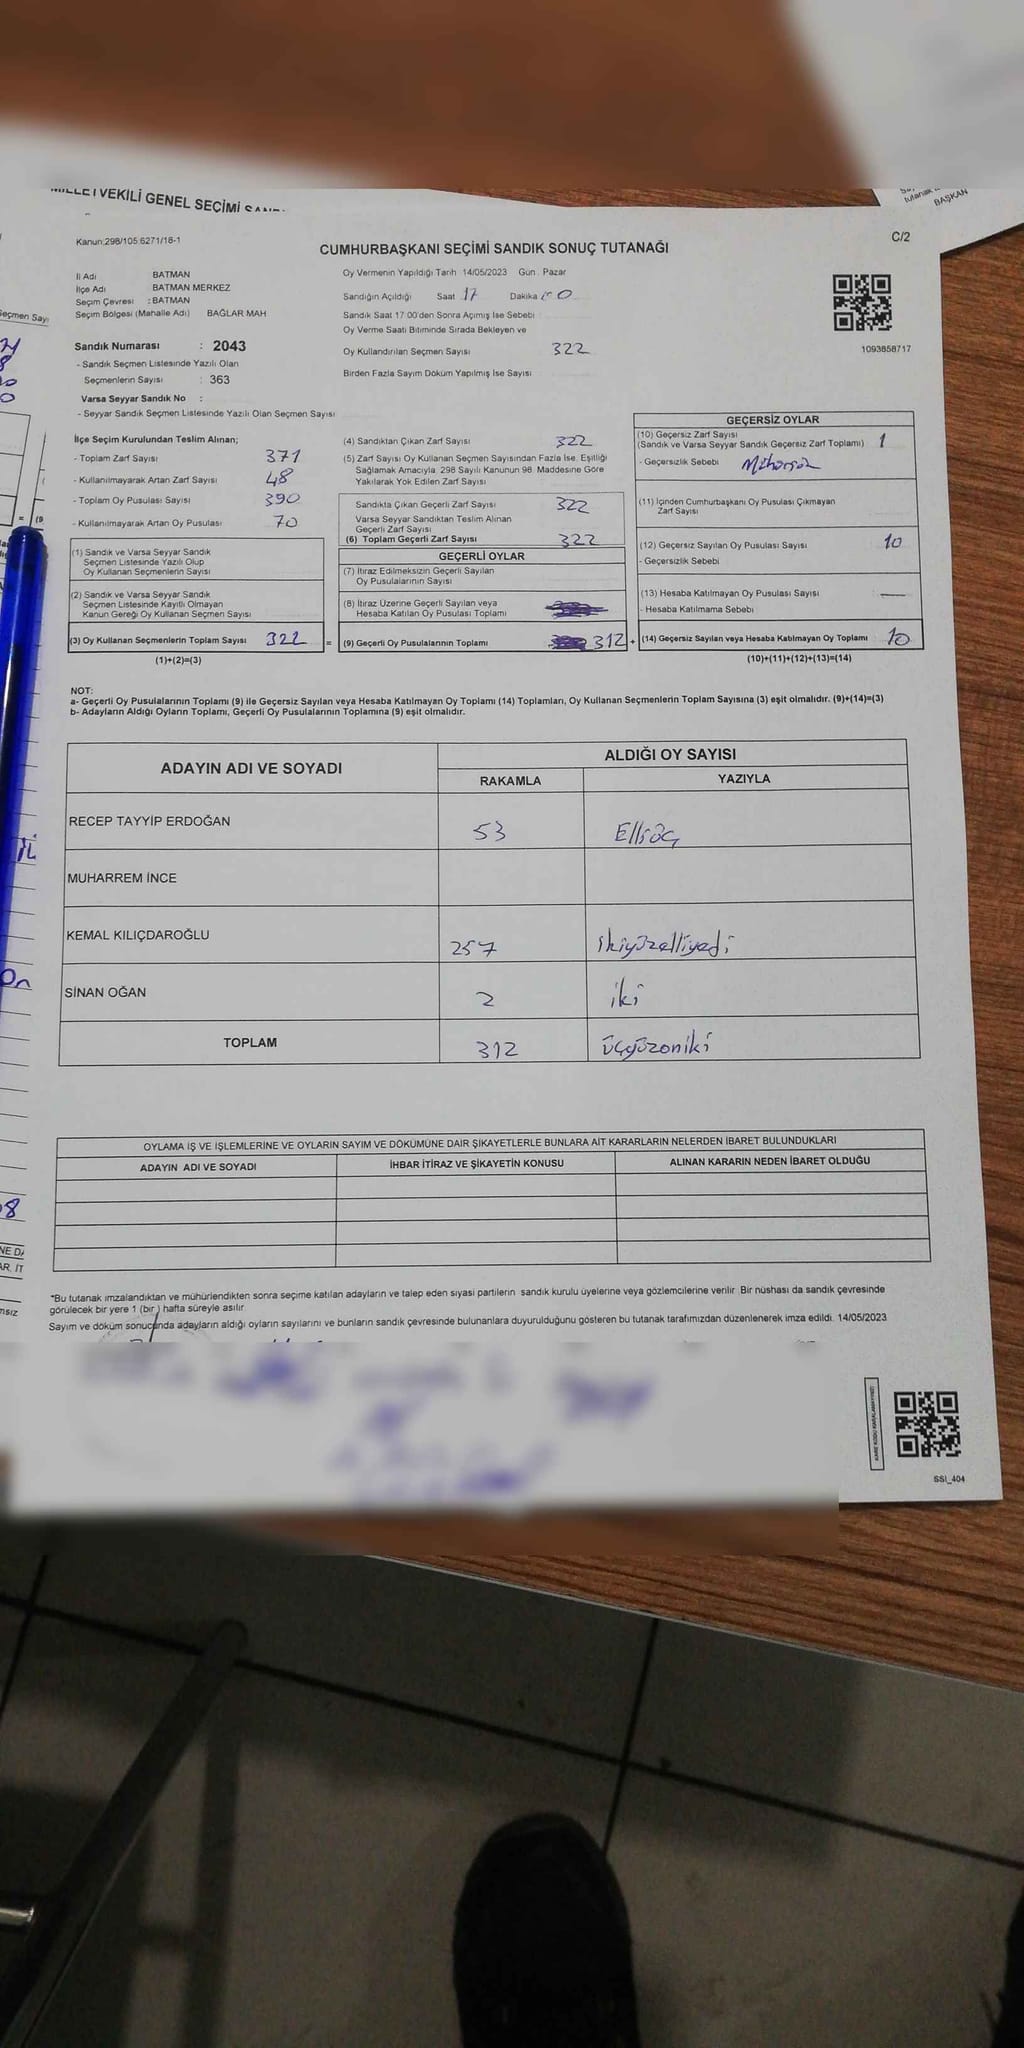 MİLLETVEKİLİ GENEL SEÇİMİ
BAŞKAN
Kanun:298/105 6271/18-1
C/2
CUMHURBAŞKANI SEÇİMİ SANDIK SONUÇ TUTANAĞI
İl Adı BATMAN
İlçe Adı BATMAN MERKEZ
Seçim Çevresi : BATMAN
Seçim Bölgesi (Mahalle Adı) BAĞLAR MAH
Sandık Numarası : 2043
- Sandık Seçmen Listesinde Yazılı Olan
Seçmenlerin Sayısı : 363
Varsa Seyyar Sandık No :
- Seyyar Sandık Seçmen Listesinde Yazılı Olan Seçmen Sayısı
Oy Vermenin Yapıldığı Tarih 14/05/2023 Gün : Pazar
Sandığın Açıldığı Saat 17 Dakika
Sandık Saat 17:00'den Sonra Açımış İse Sebebi :
Oy Verme Saati Bitiminde Sırada Bekleyen ve
Oy Kullandırılan Seçmen Sayısı 322
Birden Fazla Sayım Döküm Yapılmış İse Sayısı
1093858717
İlçe Seçim Kurulundan Teslim Alınan;
- Toplam Zarf Sayısı 371
- Kullanılmayarak Artan Zarf Sayısı 48
- Toplam Oy Pusulası Sayısı 390
- Kullanılmayarak Artan Oy Pusulası 70
(1) Sandık ve Varsa Seyyar Sandık
Seçmen Listesinde Yazılı Olup
Oy Kullanan Seçmenlerin Sayısı
(2) Sandık ve Varsa Seyyar Sandık
Seçmen Listesinde Kayıtlı Olmayan
Kanun Gereği Oy Kullanan Seçmen Sayısı
(3) Oy Kullanan Seçmenlerin Toplam Sayısı 322
(1)+(2)=(3)
(4) Sandıktan Çıkan Zarf Sayısı 322
(5) Zarf Sayısı Oy Kullanan Seçmen Sayısından Fazla İse, Eşitliği
Sağlamak Amacıyla, 298 Sayılı Kanunun 98. Maddesine Göre
Yakılarak Yok Edilen Zarf Sayısı
Sandıkta Çıkan Geçerli Zarf Sayısı 322
Varsa Seyyar Sandıktan Teslim Alınan
Geçerli Zarf Sayısı
(6) Toplam Geçerli Zarf Sayısı 322
GEÇERLİ OYLAR
(7) İtiraz Edilmeksizin Geçerli Sayılan
Oy Pusulalarının Sayısı
(8) İtiraz Üzerine Geçerli Sayılan veya
Hesaba Katılan Oy Pusulası Toplamı
= (9) Geçerli Oy Pusulalarının Toplamı 312 +
GEÇERSİZ OYLAR
(10) Geçersiz Zarf Sayısı 1
(Sandık ve Varsa Seyyar Sandık Geçersiz Zarf Toplamı)
- Geçersizlik Sebebi
(11) İçinden Cumhurbaşkanı Oy Pusulası Çıkmayan
Zarf Sayısı
(12) Geçersiz Sayılan Oy Pusulası Sayısı 10
- Geçersizlik Sebebi
(13) Hesaba Katılmayan Oy Pusulası Sayısı —
- Hesaba Katılmama Sebebi
(14) Geçersiz Sayılan veya Hesaba Katılmayan Oy Toplamı 10
(10)+(11)+(12)+(13)=(14)
NOT:
a- Geçerli Oy Pusulalarının Toplamı (9) ile Geçersiz Sayılan veya Hesaba Katılmayan Oy Toplamı (14) Toplamları, Oy Kullanan Seçmenlerin Toplam Sayısına (3) eşit olmalıdır. (9)+(14)=(3)
b- Adayların Aldığı Oyların Toplamı, Geçerli Oy Pusulalarının Toplamına (9) eşit olmalıdır.
ADAYIN ADI VE SOYADI ALDIĞI OY SAYISI
RAKAMLA YAZIYLA
RECEP TAYYİP ERDOĞAN 53 Elliüç
MUHARREM İNCE
KEMAL KILIÇDAROĞLU 257 ikiyüzelliyedi
SİNAN OĞAN 2 iki
TOPLAM 312 üçyüzoniki
OYLAMA İŞ VE İŞLEMLERİNE VE OYLARIN SAYIM VE DÖKÜMÜNE DAİR ŞİKAYETLERLE BUNLARA AİT KARARLARIN NELERDEN İBARET BULUNDUKLARI
ADAYIN ADI VE SOYADI İHBAR İTİRAZ VE ŞİKAYETİN KONUSU ALINAN KARARIN NEDEN İBARET OLDUĞU
*Bu tutanak imzalandıktan ve mühürlendikten sonra seçime katılan adayların ve talep eden siyasi partilerin sandık kurulu üyelerine veya gözlemcilerine verilir. Bir nüshası da sandık çevresinde
görülecek bir yere 1 (bir) hafta süreyle asılır.
Sayım ve döküm sonucunda adayların aldığı oyların sayılarını ve bunların sandık çevresinde bulunanlara duyurulduğunu gösteren bu tutanak tarafımızdan düzenlenerek imza edildi. 14/05/2023
SSI_404